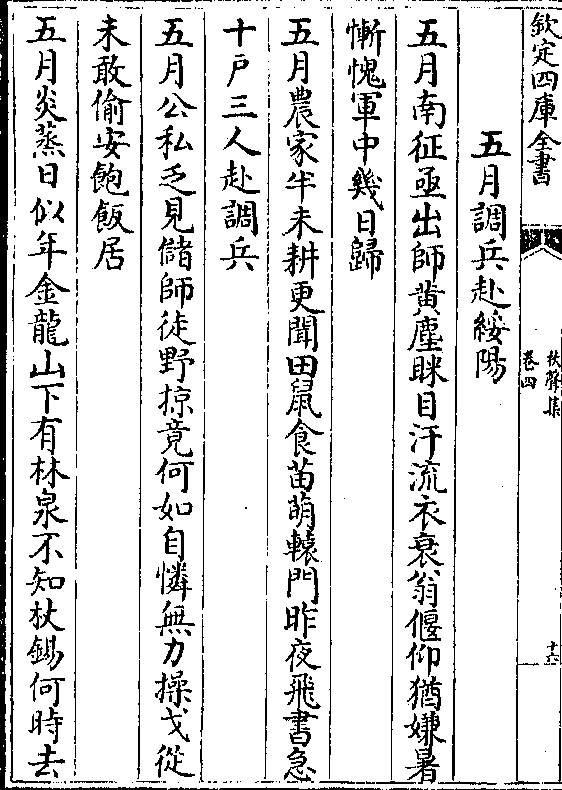 欽定四庫全書
秋聲集
卷四
十六
五月調兵赴綏陽
五月南征亟出師黄塵眯目汗流衣衰翁偃仰猶嫌暑
慚愧軍中幾日歸
五月農家半未耕更聞田鼠食苗萌轅門昨夜飛書急
十戸三人赴調兵
五月公私乏見儲師徒野掠竟何如自憐無力操戈從
未敢偷安飽飯居
五月炎蒸日似年金龍山下有林泉不知杖錫何時去